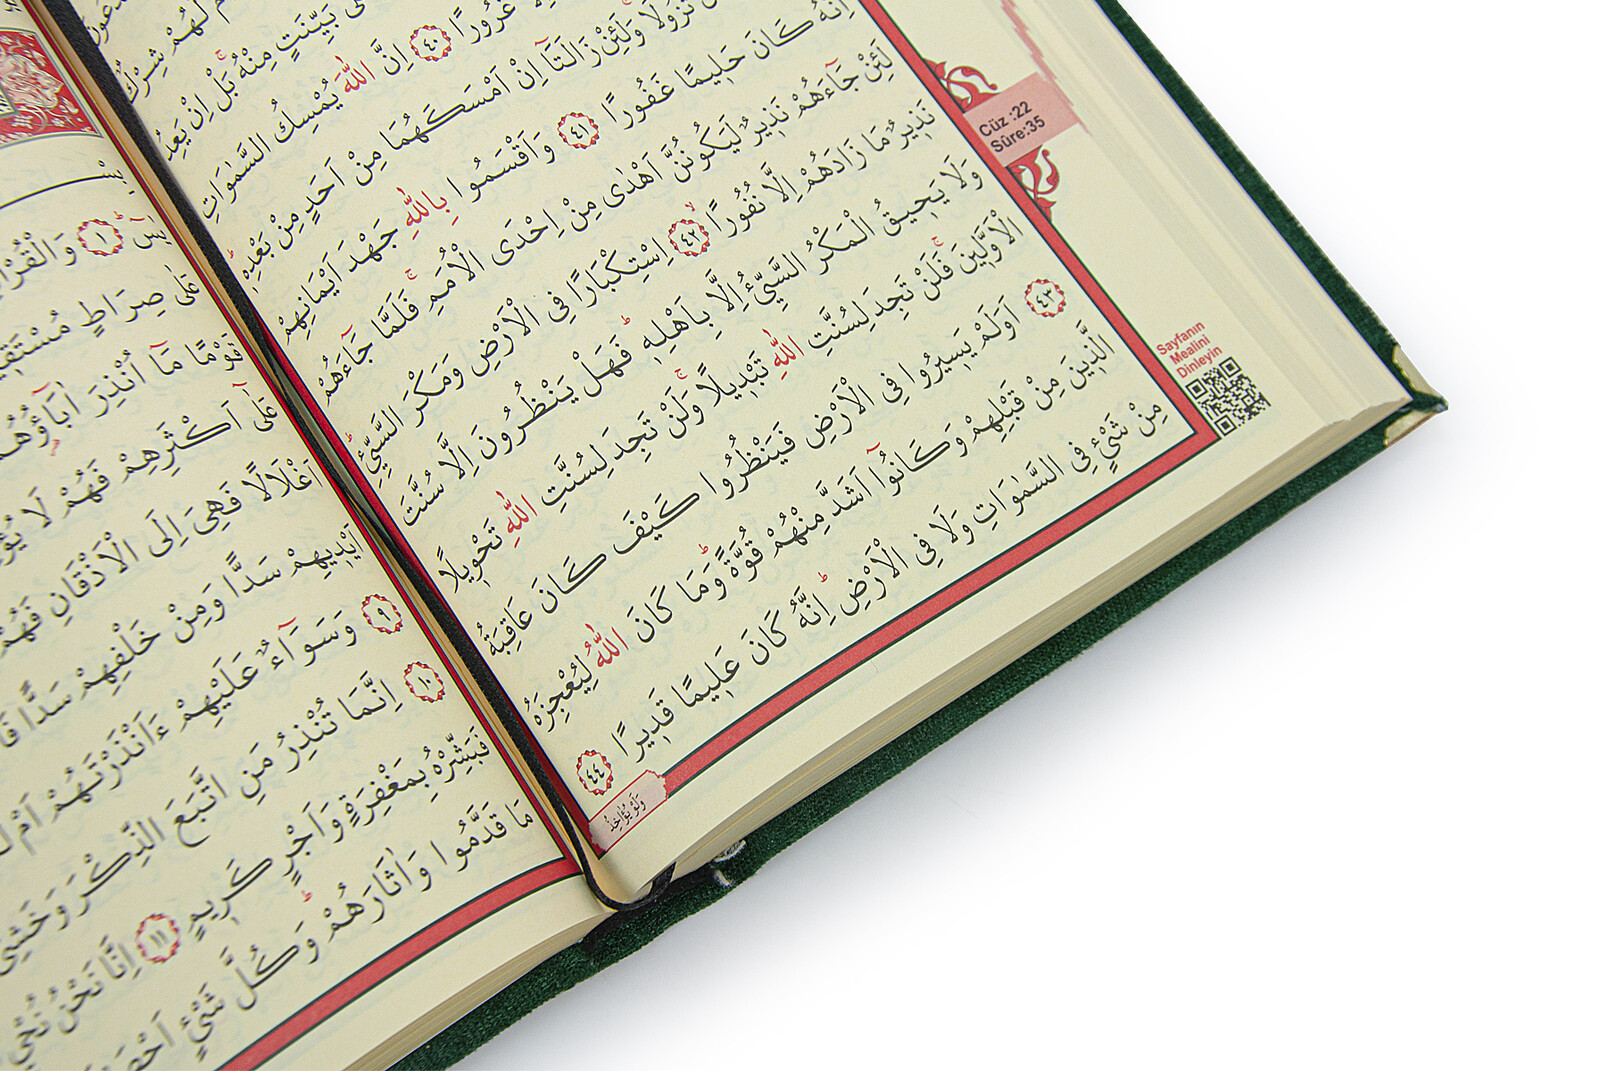 لَهُمْ شِرْكٌ
بَيِّنَتٍ مِنْهُ بَلْ اِنْ يَعِدُ
غُرُورًا ﴿٤٠﴾ اِنَّ اللّٰهَ يُمْسِكُ السَّمٰوَاتِ
تَزُولَا وَلَئِنْ زَالَتَٓا اِنْ اَمْسَكَهُمَا مِنْ اَحَدٍ مِنْ بَعْدِهٖ
اِنَّهُ كَانَ حَلٖيمًا غَفُورًا ﴿٤١﴾ وَاَقْسَمُوا بِاللّٰهِ جَهْدَ اَيْمَانِهِمْ
لَئِنْ جَٓاءَهُمْ نَذٖيرٌ لَيَكُونُنَّ اَهْدٰى مِنْ اِحْدَى الْاُمَمِ فَلَمَّا جَٓاءَهُمْ
نَذٖيرٌ مَا زَادَهُمْ اِلَّا نُفُورًا ﴿٤٢﴾ اِسْتِكْبَارًا فِي الْاَرْضِ وَمَكْرَ السَّيِّئِ
وَلَا يَحٖيقُ الْمَكْرُ السَّيِّئُ اِلَّا بِاَهْلِهٖ فَهَلْ يَنْظُرُونَ اِلَّا سُنَّتَ
الْاَوَّلٖينَ فَلَنْ تَجِدَ لِسُنَّتِ اللّٰهِ تَبْدٖيلًا وَلَنْ تَجِدَ لِسُنَّتِ اللّٰهِ تَحْوٖيلًا
﴿٤٣﴾ اَوَلَمْ يَسٖيرُوا فِي الْاَرْضِ فَيَنْظُرُوا كَيْفَ كَانَ عَاقِبَةُ
الَّذٖينَ مِنْ قَبْلِهِمْ وَكَانُٓوا اَشَدَّ مِنْهُمْ قُوَّةً وَمَا كَانَ اللّٰهُ لِيُعْجِزَهُ
مِنْ شَيْءٍ فِي السَّمٰوَاتِ وَلَا فِي الْاَرْضِ اِنَّهُ كَانَ عَلٖيمًا قَدٖيرًا ﴿٤٤﴾
وَلَوْ يُؤَاخِذُ
Cüz :22
Sûre:35
Sayfanın
Mealini
Dinleyin
يٰسٓ ﴿١﴾ وَالْقُرْاٰ
عَلٰى صِرَاطٍ مُسْتَقٖ
قَوْمًا مَٓا اُنْذِرَ اٰبَٓاؤُهُمْ
عَلٰٓى اَكْثَرِهِمْ فَهُمْ لَا يُؤْ
اَغْلَالًا فَهِيَ اِلَى الْاَذْقَانِ فَهُمْ
اَيْدٖيهِمْ سَدًّا وَمِنْ خَلْفِهِمْ سَدًّا فَا
﴿٩﴾ وَسَوَٓاءٌ عَلَيْهِمْ ءَاَنْذَرْتَهُمْ اَمْ لَ
﴿١٠﴾ اِنَّمَا تُنْذِرُ مَنِ اتَّبَعَ الذِّكْرَ وَخَشِيَ
فَبَشِّرْهُ بِمَغْفِرَةٍ وَاَجْرٍ كَرٖيمٍ ﴿١١﴾ اِنَّا نَحْنُ نُحْيِ
مَا قَدَّمُوا وَاٰثَارَهُمْ وَكُلَّ شَيْءٍ اَحْصَ